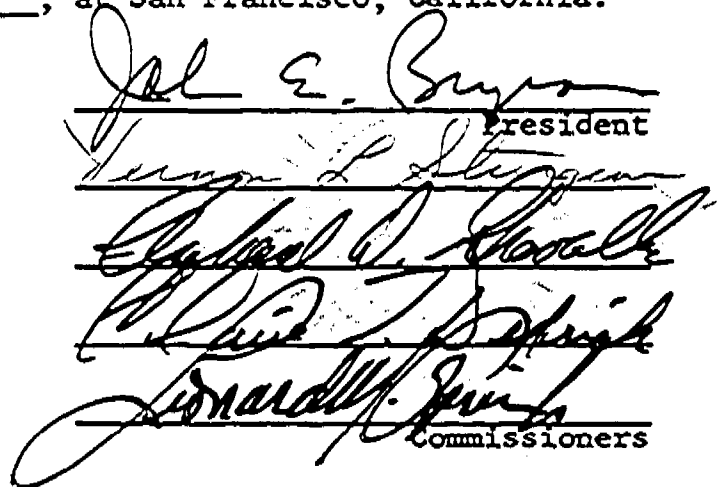 , at San Francisco, California.
John E. Bryson
President
Vernon L. Sturgeon
Richard D. Gravelle
Claire T. Dedrick
Leonard M. Grimes
Commissioners